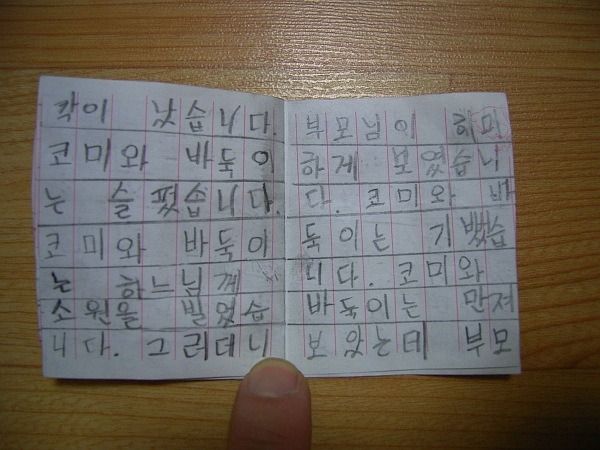 각이 낫습니다.
코미와 바둑이
는 슬펐습니다.
코미와 바둑이
는 하느님께
소원을 빌었습
니다. 그러더니
부모님이 희미
하게 보였습니
다. 코미와 바
둑이는 기뻤습
니다. 코미와
바둑이는 만져
보았는데 부모